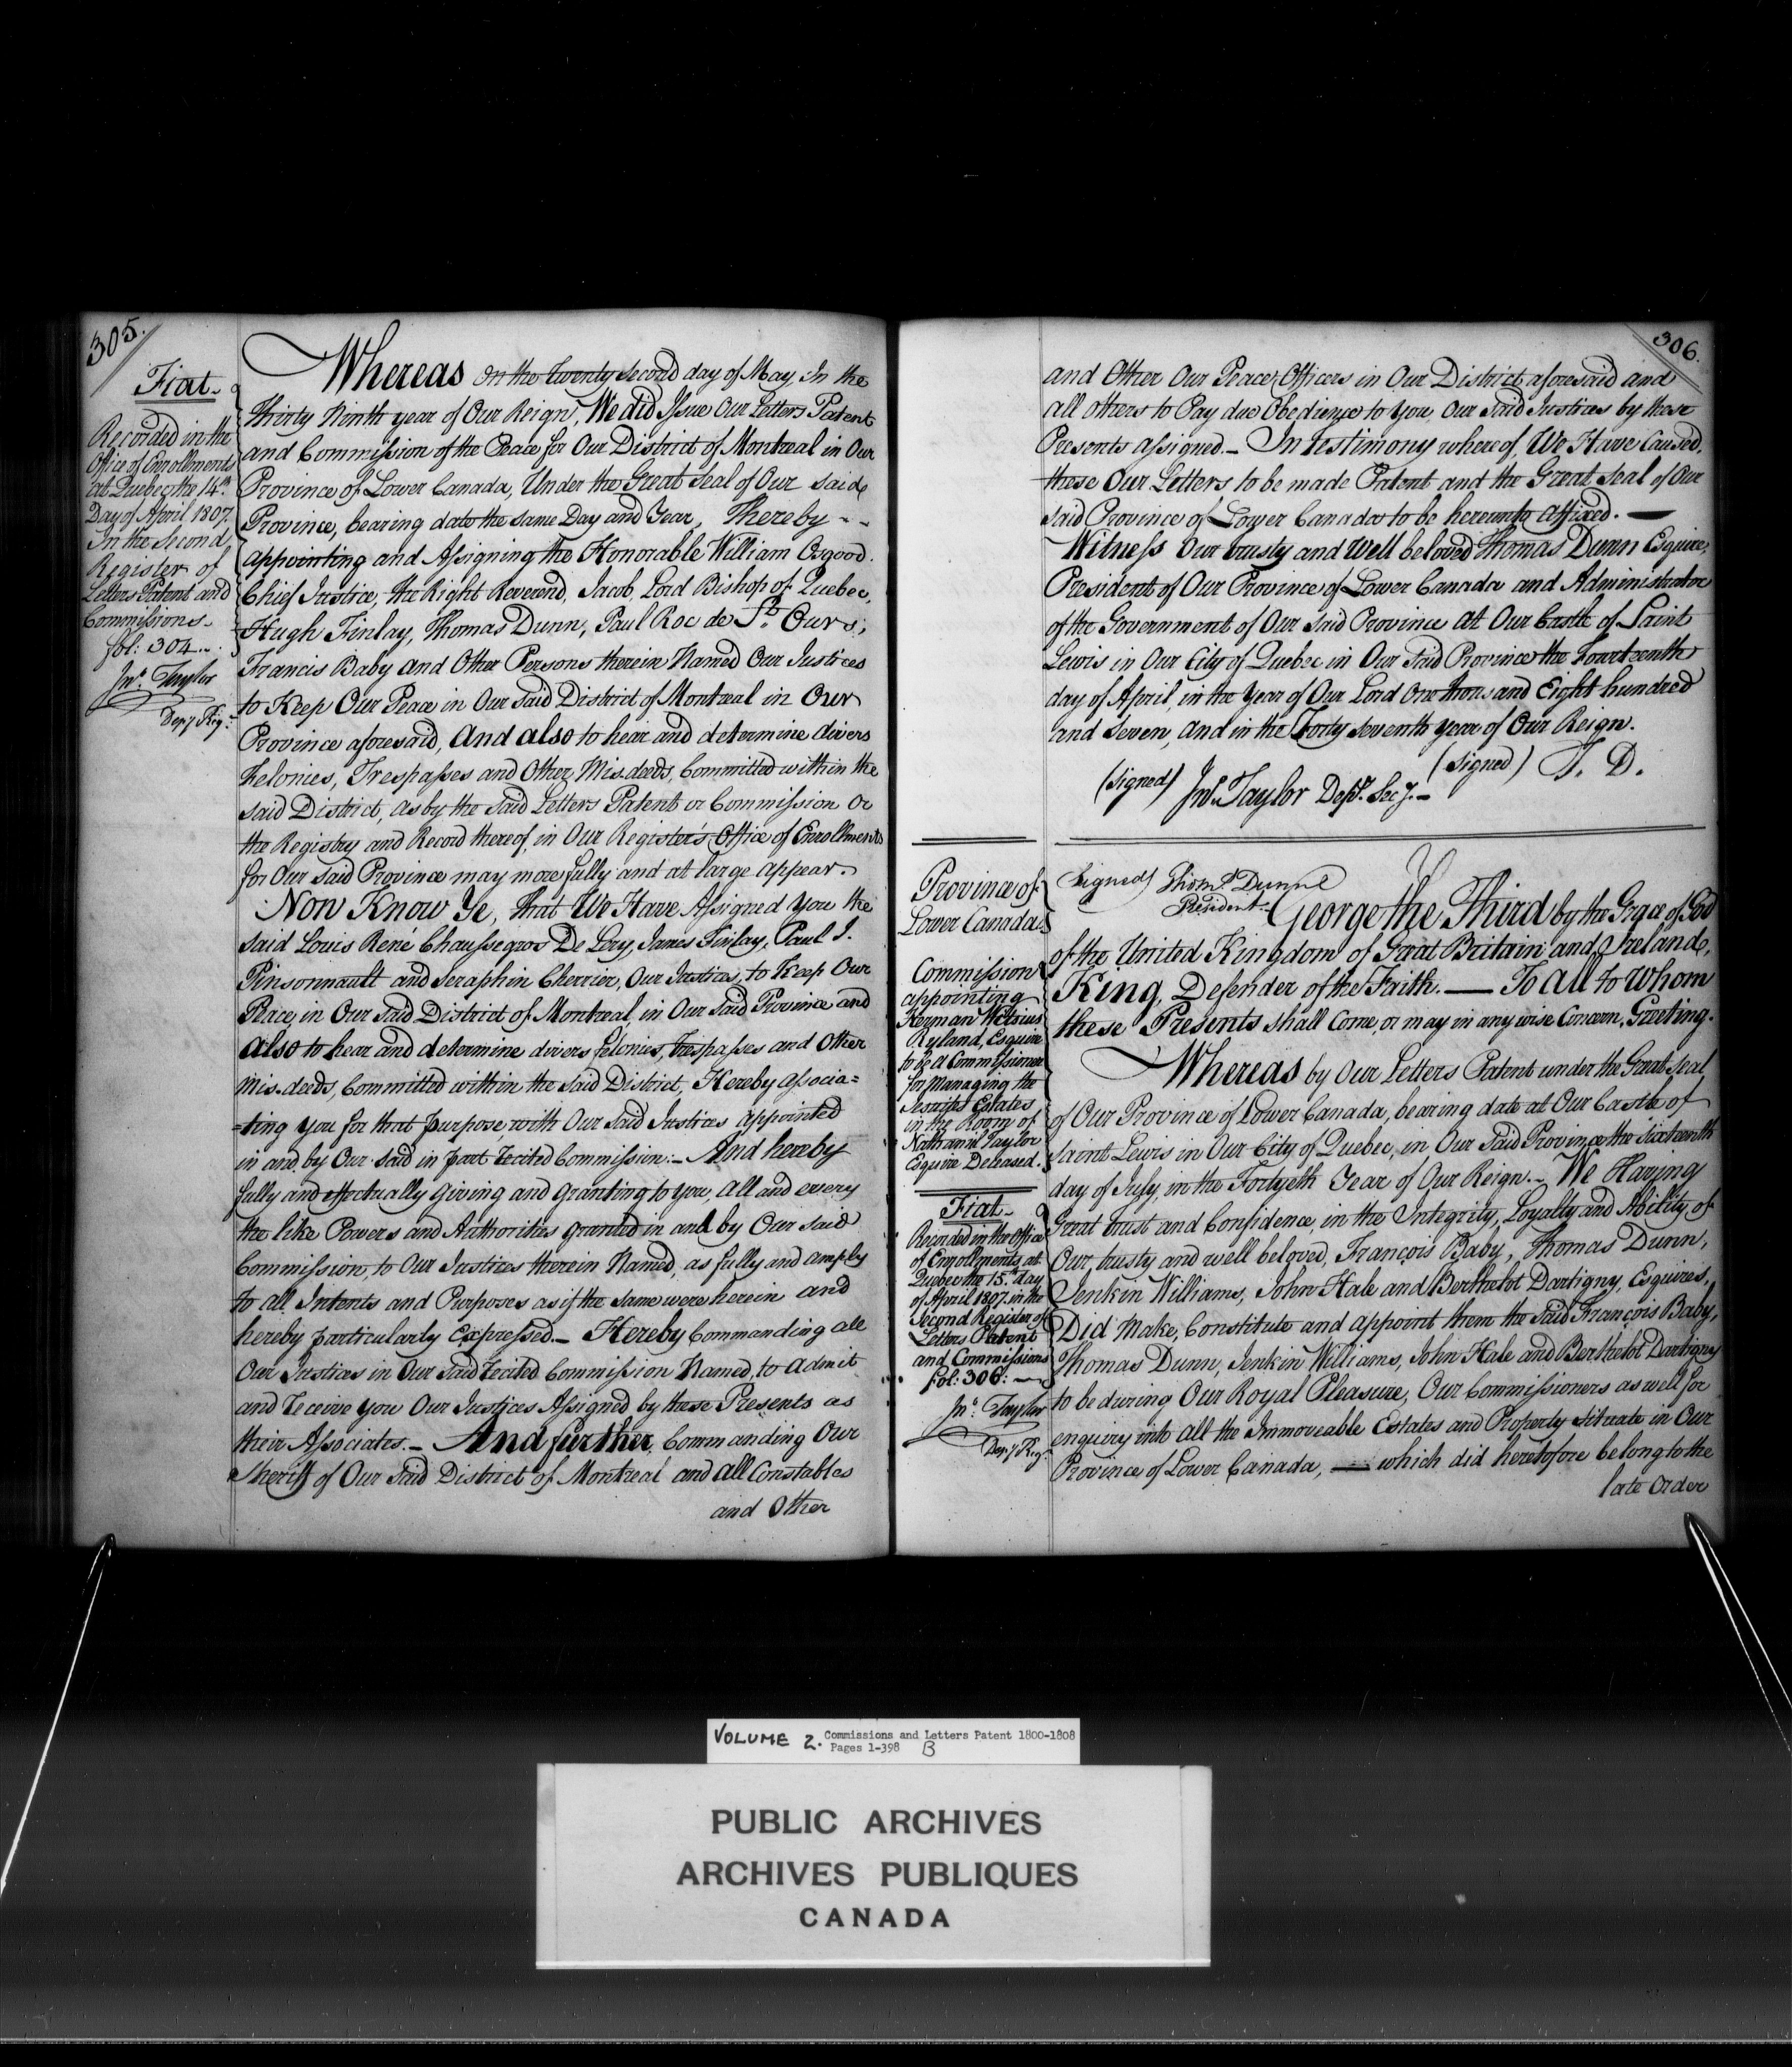 305.
Fiat.
Recorded in the
Office of Enrollments
at Quebec the 14th
Day of April 1807.
In the Second
Register of
Letters Patent and
Commissions
fol: 304...
Jno. Taylor
Depy Regr.
Whereas on the twenty second day of May, In the
Thirty Ninth year of Our Reign, We did Issue Our Letters Patent
and Commission of the Peace for Our District of Montreal in Our
Province of Lower Canada, Under the Great Seal of Our said
Province, bearing date the same Day and Year, Thereby - -
appointing and Assigning the Honorable William Osgood
Chief Justice, the Right Reverend, Jacob, Lord Bishop of Quebec,
Hugh Finlay, Thomas Dunn, Paul Roc de St. Ours,
Francis Baby and Other Persons therein Named Our Justices
to Keep Our Peace in Our said District of Montreal in Our
Province aforesaid, And also to hear and determine divers
Felonies, Trespasses and Other Mis.deeds, Committed within the
said District, as by the said Letters Patent or Commission or
the Registry and Record thereof, in Our Register's Office of Enrollments
for Our said Province may more fully and at large appear.
Now Know Ye, that We Have Assigned you the
said Louis René Chaussegros De Lery, James Finlay, Paul I.
Pinsonnault and Seraphin Cherrier, Our Justices, to Keep Our
Peace, in Our said District of Montreal, in Our said Province and
also to hear and determine divers felonies, trespasses and Other
Mis.deeds, Committed within the said District, Hereby associa=
=ting you for that purpose, with Our said Justices appointed
in and by Our said in part recited Commission:- And hereby
fully and effectually Giving and Granting to you, all and every
the like Powers and Authorities granted in and by Our said
Commission, to Our Justices therein Named, as fully and amply
to all Intents and Purposes as if the same were herein and
hereby particularly Expressed.- Hereby Commanding all
Our Justices in Our said recited Commission Named, to admit
and receive you Our Justices Assigned by these Presents as
their Associates.- And further, Commanding Our
Sheriff of Our said District of Montreal and all Constables
and Other
306.
and Other Our Peace Officers in Our District aforesaid and
all others to Pay due Obedience to you Our said Justices by these
Presents assigned.- In Testimony whereof, We Have Caused,
these Our Letters to be made Patent and the Great Seal of Our
said Province of Lower Canada to be hereunto affixed.-
Witness Our trusty and Well beloved Thomas Dunn Esquire,
President of Our Province of Lower Canada and Administrator
of the Government of Our said Province at Our Castle of Saint
Lewis in Our City of Quebec in Our said Province the Fourteenth
day of April, in the Year of Our Lord One thousand Eight hundred
and Seven, and in the Forty seventh year of Our Reign.
(signed) T. D.
(signed) Jno. Taylor Depy. Secy.-
Province of
Lower Canada.
Commission
appointing
Herman Witsius
Ryland, Esquire
to be a Commissioner
for Managing the
Jesuits Estates
in the Room of
Nathaniel Taylor
Esquire Deceased.
Fiat.
Recorded in the Office
of Enrollments at
Quebec the 15th day
of April 1807. in the
Second Register of
Letters Patent
and Commissions
fol: 306:
Jno. Taylor
Depy Regr.
(signed) Thoms. Dunn
President.
George the Third by the Grace of God
of the United Kingdom of Great Britain and Ireland,
King, Defender of the Faith.- To All to Whom
these Presents shall Come, or may in any wise Concern, Greeting.
Whereas by Our Letters Patent under the Great Seal
of Our Province of Lower Canada, bearing date at Our Castle of
Saint Lewis in Our City of Quebec, in Our said Province the Sixteenth
day of July, in the Fortyeth Year of Our Reign.- We Having
Great trust and Confidence, in the Integrity, Loyalty and Ability of
Our, trusty and well beloved, François Baby, Thomas Dunn,
Jenkin Williams, John Hale and Berthelot Dartigny, Esquires,
Did Make, Constitute and appoint them the said François Baby,
Thomas Dunn, Jenkin Williams, John Hale and Berthelot Dartigny
to be during Our Royal Pleasure, Our Commissioners as well for
enquiry into all the Immoveable Estates and Property situate in Our
Province of Lower Canada, - which did heretofore belong to the
late Order
VOLUME 2. Commissions and Letters Patent 1800-1808
Pages 1-398 B
PUBLIC ARCHIVES
ARCHIVES PUBLIQUES
CANADA